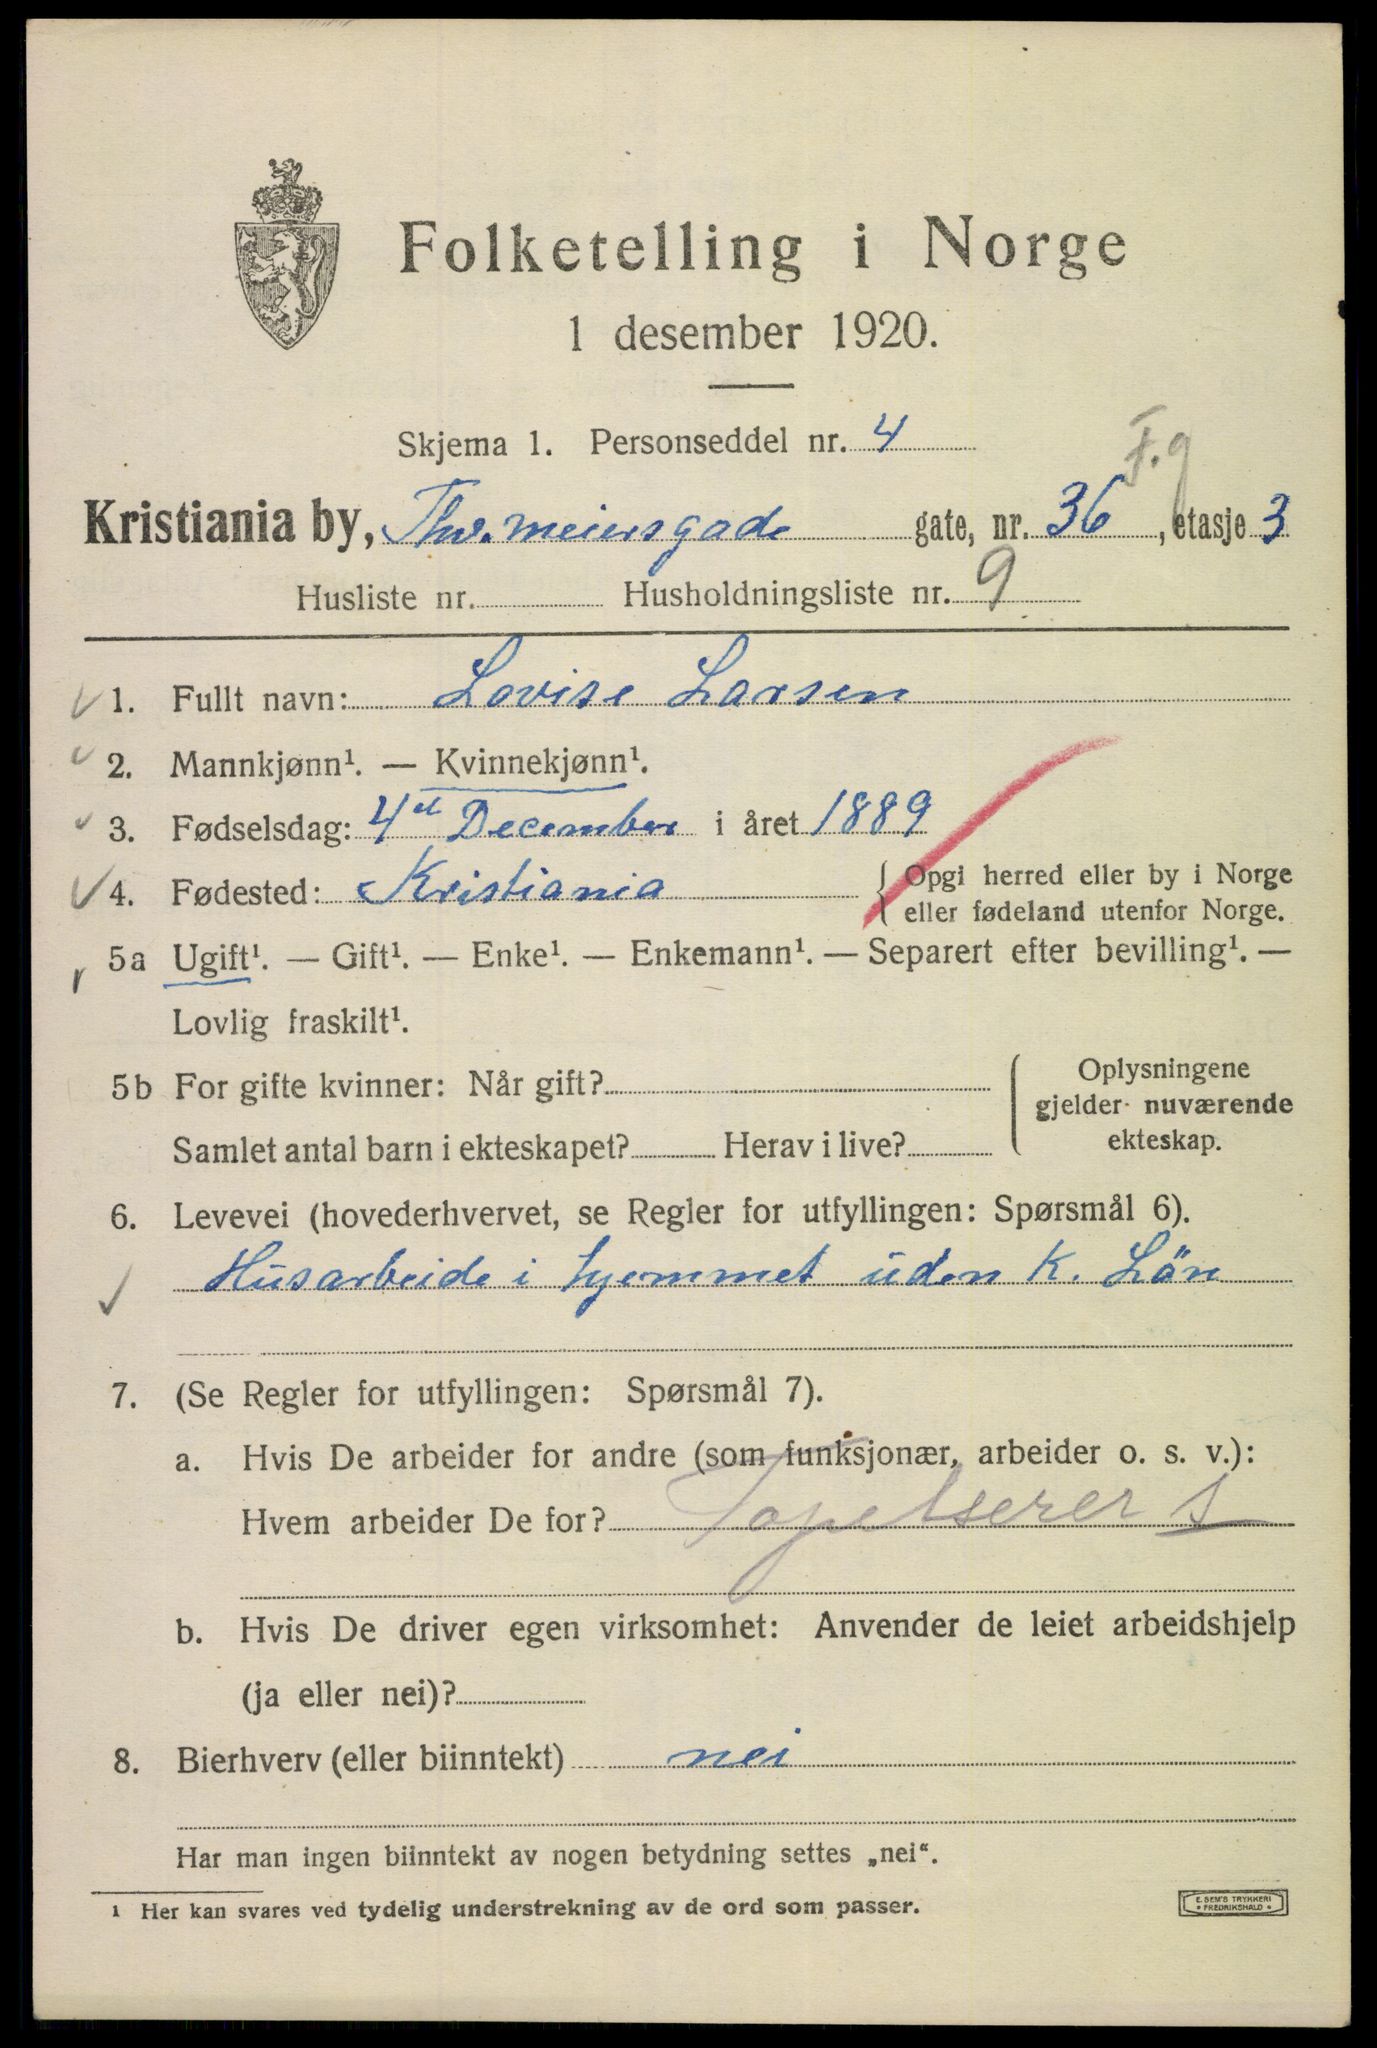 Folketelling i Norge
1 desember 1920.
Skjema 1. Personseddel nr. 4
F.g
Kristiania by, Thv. meiersgade gate, nr. 36, etasje 3
Husliste nr. Husholdningsliste nr. 9
1. Fullt navn: Lovise Larsen
2. Mannkjønn¹. — Kvinnekjønn¹.
3. Fødselsdag: 4de December i året 1889
4. Fødested: Kristiania { Opgi herred eller by i Norge
eller fødeland utenfor Norge.
5a Ugift¹. — Gift¹. — Enke¹. — Enkemann¹. — Separert efter bevilling¹. —
Lovlig fraskilt¹.
5b For gifte kvinner: Når gift?
Samlet antal barn i ekteskapet? Herav i live?
Oplysningene
gjelder nuværende
ekteskap.
6. Levevei (hovederhvervet, se Regler for utfyllingen: Spørsmål 6).
Husarbeide i hjemmet uden K. Lön
7. (Se Regler for utfyllingen: Spørsmål 7).
a. Hvis De arbeider for andre (som funksjonær, arbeider o. s. v.):
Hvem arbeider De for? Tapetserer s
b. Hvis De driver egen virksomhet: Anvender de leiet arbeidshjelp
(ja eller nei)?
8. Bierhverv (eller biinntekt) nei
Har man ingen biinntekt av nogen betydning settes „nei“.
1 Her kan svares ved tydelig understrekning av de ord som passer.
E. SEM'S TRYKKERI
* FREDRIKSHALD *